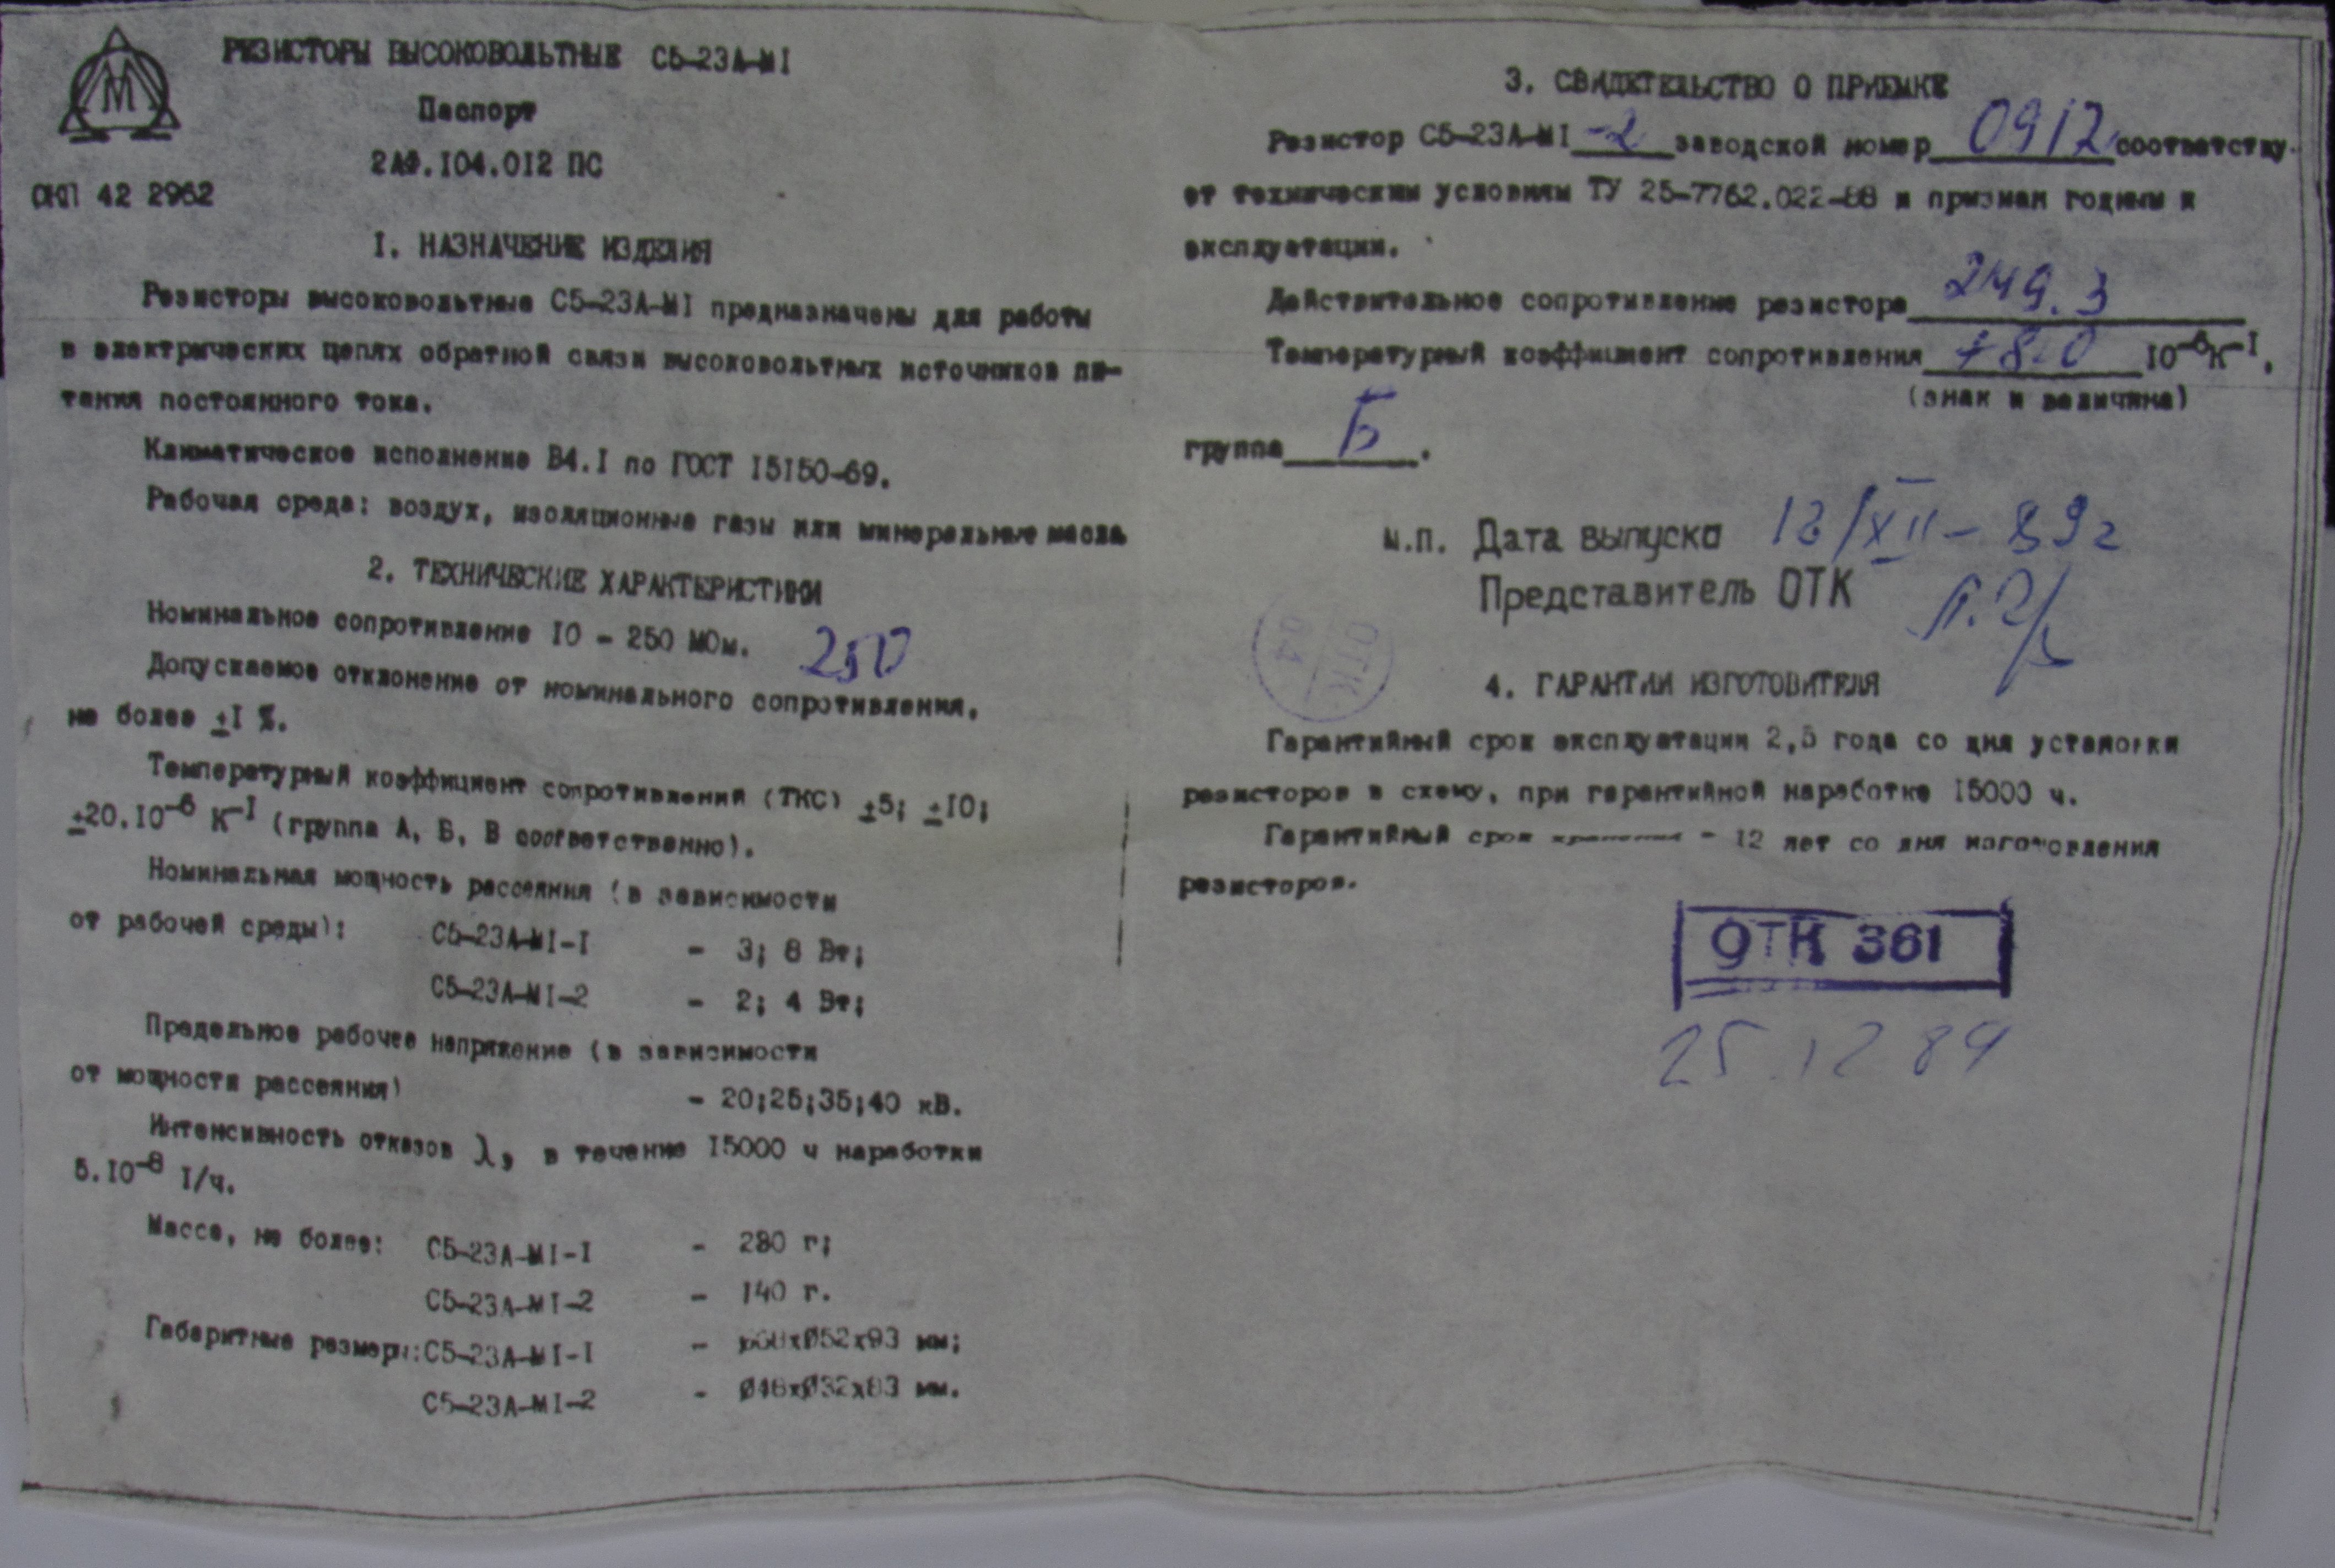 М
РЕЗИСТОРЫ ВЫСОКОВОЛЬТНЫЕ С5-23А-МI
Паспорт
2АФ.I04.012 ПС
ОКП 42 2962
I. НАЗНАЧЕНИЕ ИЗДЕЛИЯ
Резисторы высоковольтные С5-23А-МI предназначены для работы
в электрических цепях обратной связи высоковольтных источников пи-
тания постоянного тока.
Климатическое исполнение В4.I по ГОСТ I5I50-69.
Рабочая среда: воздух, изоляционные газы или минеральные масла
2. ТЕХНИЧЕСКИЕ ХАРАКТЕРИСТИКИ
Номинальное сопротивление IO - 250 МОм. 250
Допускаемое отклонение от номинального сопротивления,
не более ±I %.
Температурный коэффициент сопротивлений (ТКС) ±5; ±IO;
±20.IO⁻⁶ К⁻I (группа А, Б, В соответственно).
Номинальная мощность рассеяния (в зависимости
от рабочей среды):
С5-23А-МI-I - 3; 8 Вт;
С5-23А-МI-2 - 2; 4 Вт;
Предельное рабочее напряжение (в зависимости
от мощности рассеяния) - 20;25;35;40 кВ.
Интенсивность отказов λ, в течение I5000 ч наработки
5.IO⁻⁸ I/ч.
Масса, не более: С5-23А-МI-I - 280 г;
С5-23А-МI-2 - I40 г.
Габаритные размеры: С5-23А-МI-I - хØ52х93 мм;
С5-23А-МI-2 - Ø48хØ32х83 мм.
3. СВИДЕТЕЛЬСТВО О ПРИЕМКЕ
Резистор С5-23А-МI -2 заводской номер 0912 соответству-
ет техническим условиям ТУ 25-7762.022-88 и признан годным к
эксплуатации.
Действительное сопротивление резистора 249.3
Температурный коэффициент сопротивления +8.0 IO⁻⁶К⁻I,
(знак и величина)
группа Б.
М.П. Дата выпуска /XII - 89г
Представитель ОТК
ОТК
4. ГАРАНТИИ ИЗГОТОВИТЕЛЯ
Гарантийный срок эксплуатации 2,5 года со дня установки
резисторов в схему, при гарантийной наработке I5000 ч.
Гарантийный срок хранения - 12 лет со дня изготовления
резисторов.
ОТК 361
25.12 89